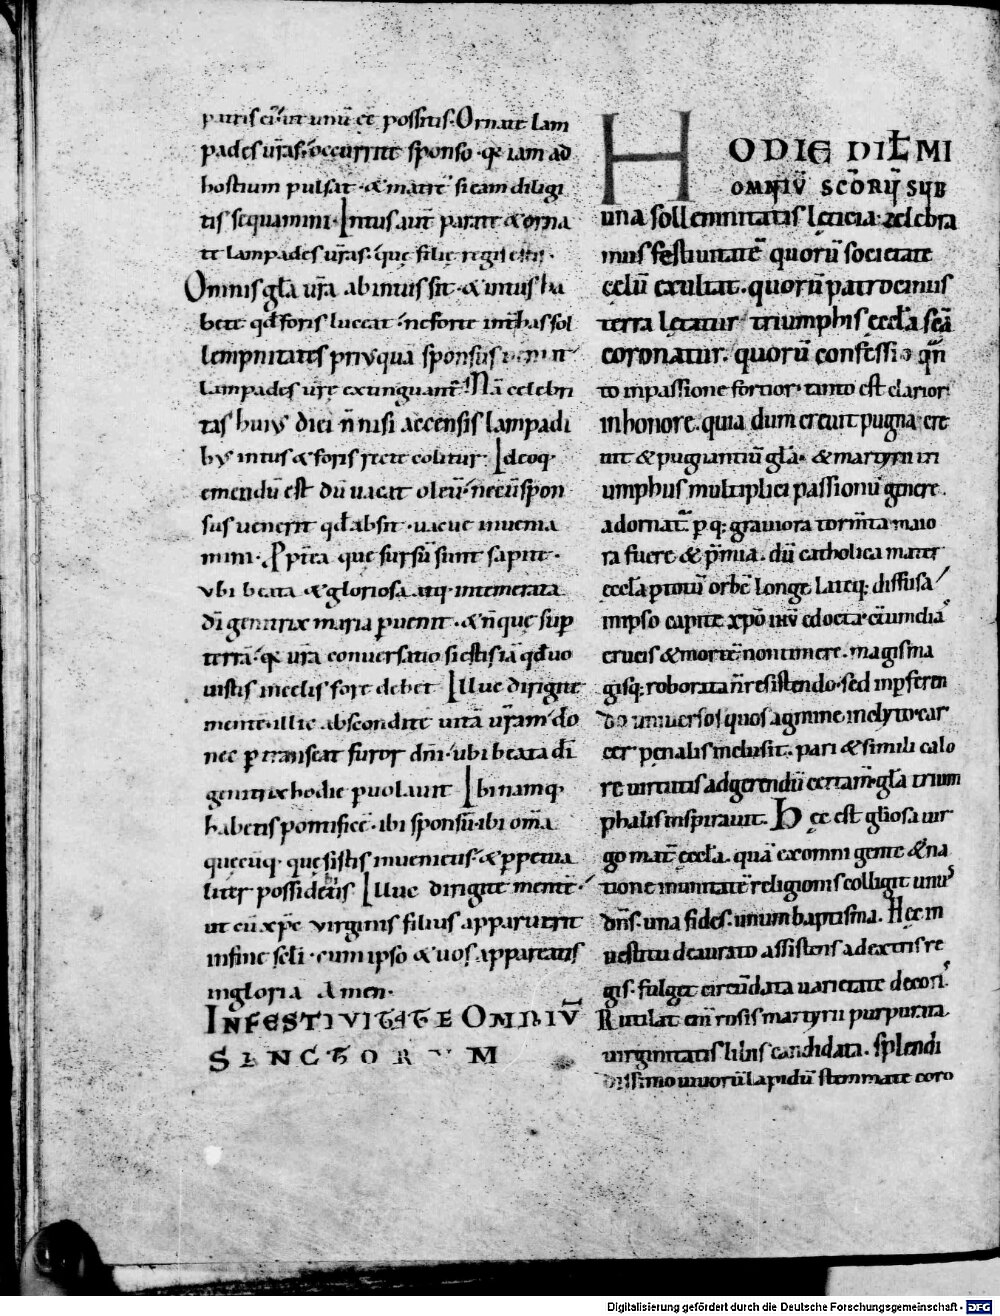 patris ei᷒ in unū eē possitis. Ornate lam
pades ur̄as. occurrite sponso. q̨ iam ad
hostium pulsat. & matrē si eam diligi
tis sequamini. Intus aut̄ parate & orna
te lampades ur̄as. quę filię regis estis.
Omnis gl̄a ur̄a ab intus sit. & intus ha
bete qd̄ foris luceat. ne forte int̄ has sol
lempnitates priusqua sponsus ueniat
lampades ur̄ę exunguant᷒. Nā celebri
tas huiꝰ diei n̄ nisi accensis lampadi
bꝰ intus & foris rite colitur. Ideoq̨
emendū est dū uacat oleū. ne cū spon
sus uenerit qd̄ absit. uacue inuenia
mini. Ppt̄ea que sursū sunt sapite.
ubi beata & gloriosa atq̨ intemerata
dī genitrix maria puenit. & n̄ que sup
terrā. q̨ ur̄a conuersatio si estis iā qd̄ uo
uistis in celis fore debet. Illuc dirigite
mente. illic abscondite uitā ur̄am. do
nec p transeat furor dn̄i. ubi beata dī
genitrix hodie puolauit. Ibi namq̨
habetis pontificē. ibi sponsū. ibi om̄a
quęcūq̨. quęsistis inuenietis. & ppetua
liter possidetis. Illuc dirigite mentē.
ut cū xp̄c virginis filius apparuerit
in fine scl̄i. cum ipso & uos appareatis
in gloria Amen.
IN FESTIVITATE OMNIV̄
SANCTORVM
HODIE DIL̄MI
OMNIV̄ SCŌRV̄ SUB
una sollemnitatis lęticia celebra
mus festiuitatē quorū societate
celū exultat. quorū patrociniis
terra lętatur triumphis eccl̄a sc̄a
coronatur. quorū confessio qn̄
to in passione fortior. tanto est clarior
in honore. quia dum creuit pugna cre
uit & pugnantiū gl̄a. & martyrii tri
umphus multiplici passionū genere
adornat᷒. p q; grauiora torm̄ta maio
ra fuere & p̄mia. dū catholica mater
eccl̄a p totū orbē longe lateq; diffusa
in ipso capite xp̄o ihū edocta. ei᷒ mdia᷒
crucis & mortē non timere. magis ma
gisq; roborata n̄ resistendo. sed in pferen
do uniuersos quos agmine inclyto car
cer penalis inclusit. pari & simili calo
re uirtutis ad gerendū certam̄. gl̄a trium
phalis inspirauit. Hęc est gliosa uir
go mat̄ eccl̄a. quā ex omni gente & na
tione in unitatē religionis colligit unus
dn̄s. una fides. unum baptisma. Hęc in
uestitu deaurato assistens a dextris re
gis. fulget circūdata uarietate decoris.
Rutilat eni rosis martyrii purpurata
uirginitatis liliis candidata. splendi
dissimo uiuorū lapidū stemmate coro
Digitalisierung gefördert durch die Deutsche Forschungsgemeinschaft - DFG